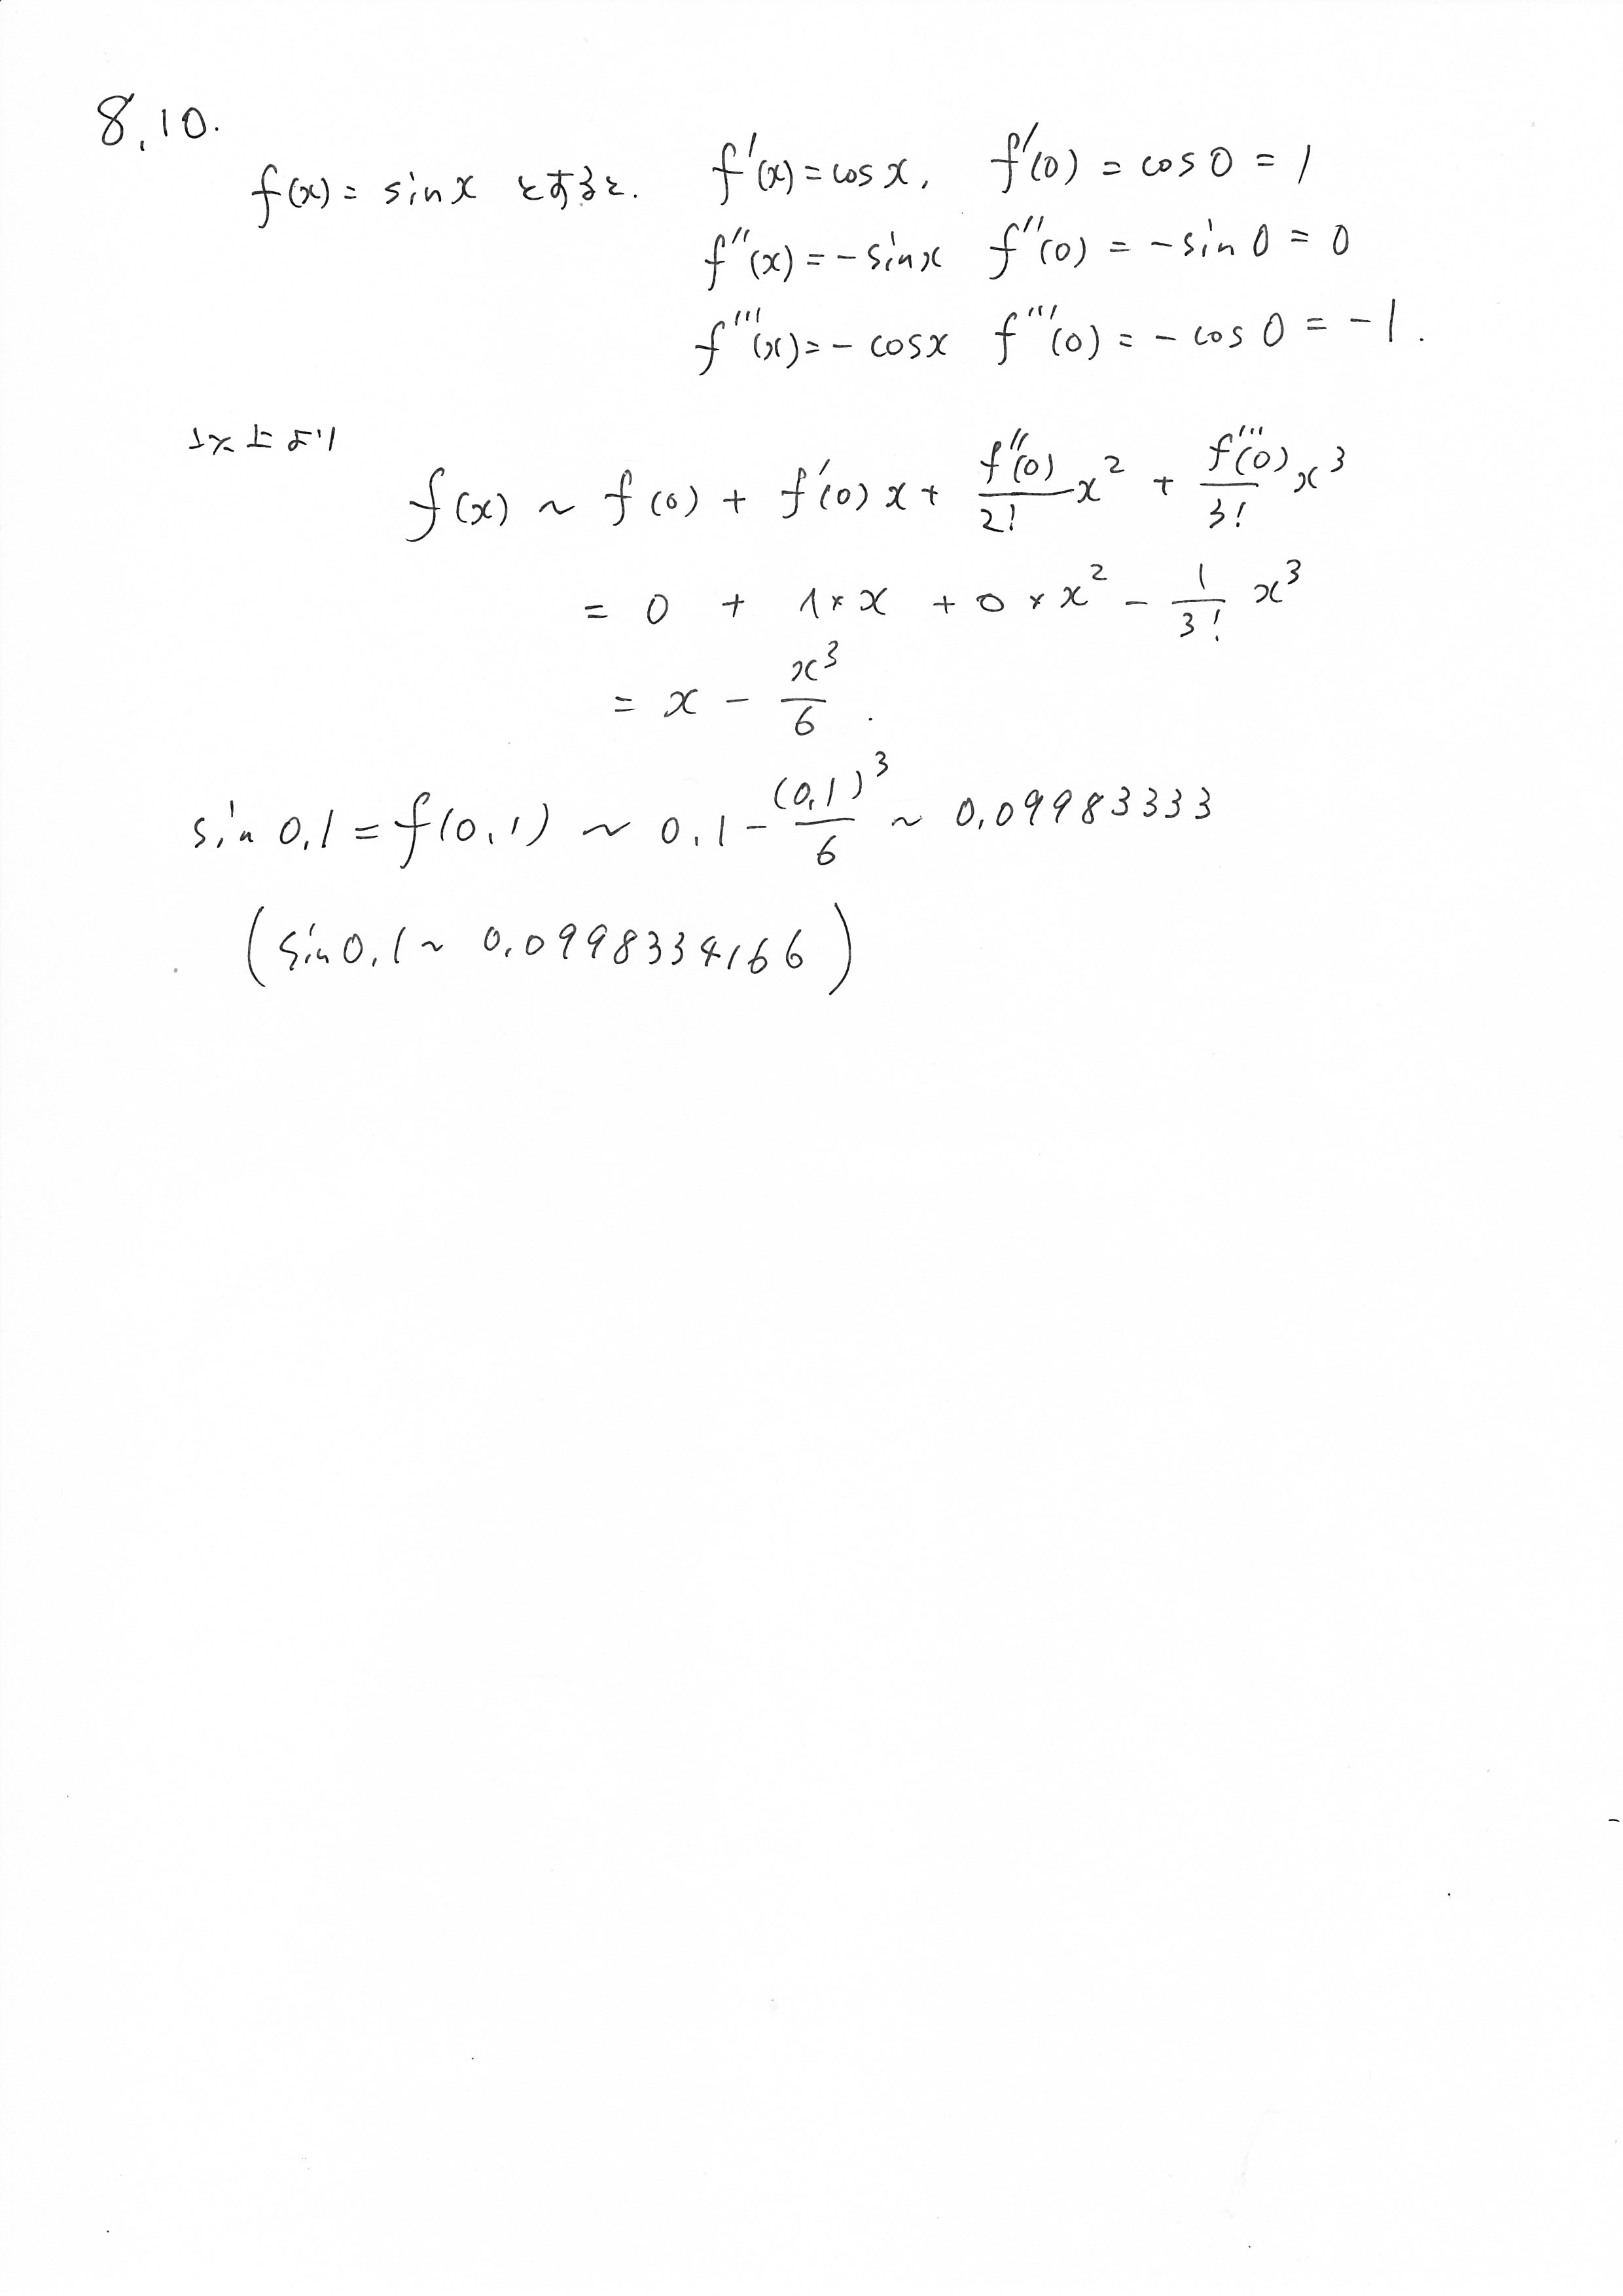 8.10.
f(x) = sin x とすると. f'(x) = cos x, f'(0) = cos 0 = 1
f''(x) = - sin x f''(0) = - sin 0 = 0
f'''(x) = - cos x f'''(0) = - cos 0 = -1.
以上より
f(x) ~ f(0) + f'(0) x + f''(0)/2! x^2 + f'''(0)/3! x^3
= 0 + 1 × x + 0 × x^2 - 1/3! x^3
= x - x^3/6 .
sin 0.1 = f(0.1) ~ 0.1 - (0.1)^3/6 ~ 0.09983333
(sin 0.1 ~ 0.0998334166)